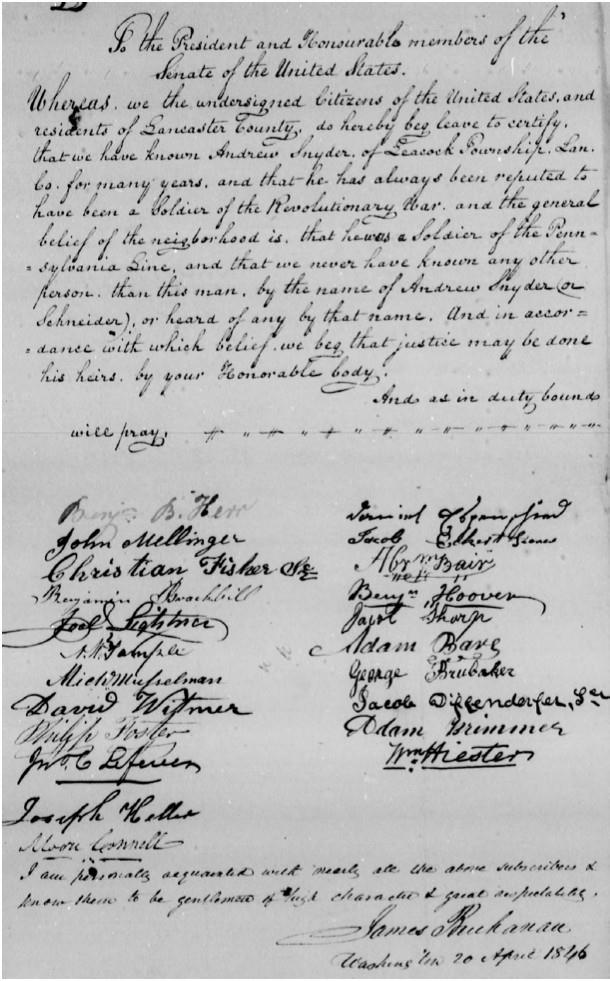 To the President and Honourable members of the
Senate of the United States.
Whereas, we the undersigned Citizens of the United States, and
residents of Lancaster County, do hereby beg leave to certify,
that we have known Andrew Snyder, of Leacock Township, Lan.
Co. for many years, and that he has always been reputed to
have been a Soldier of the Revolutionary War, and the general
belief of the neigborhood is, that he was a Soldier of the Penn=
=sylvania Line, and that we never have known any other
person, than this man, by the name of Andrew Snyder (or
Schneider), or heard of any by that name. And in accor=
=dance with which belief, we beg that justice may be done
his heirs, by your Honorable body.
And as in duty bound
will pray,
Benjn B. Herr
John Mellinger
Christian Fisher Sr
Benjamin Brackbill
Joel Lightner
N. W. Sample
Mich Musselman
David Witmer
Philip Foster
Jno. C. Lefever
Joseph Heller
Moore Connell
Jacob Eckert
Abrm Bair
Benjn Hoover
Tharp
Adam Bare
George Brubaker
Jacob Diffenderfer, Sr
Adam Brimmer
Wm Hiester
I am personally acquainted with nearly all the above subscribers &
know them to be gentlemen of high character & great respectability.
James Buchanan
Washington 20 April 1846